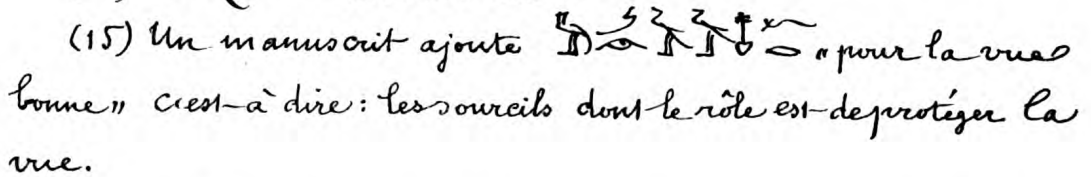 (15) Un manuscrit ajoute « pour la vue
bonne » c'est-à dire : les sourcils dont le rôle est de protéger la
vue.